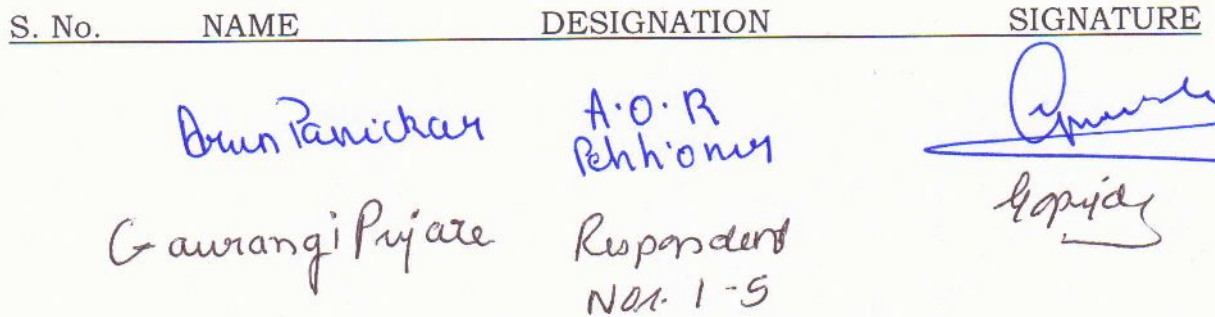 S. No. NAME DESIGNATION SIGNATURE
Arun Panickar A.O.R
Petitioner
Gaurangi Pujare Respondent
Nos. 1-5